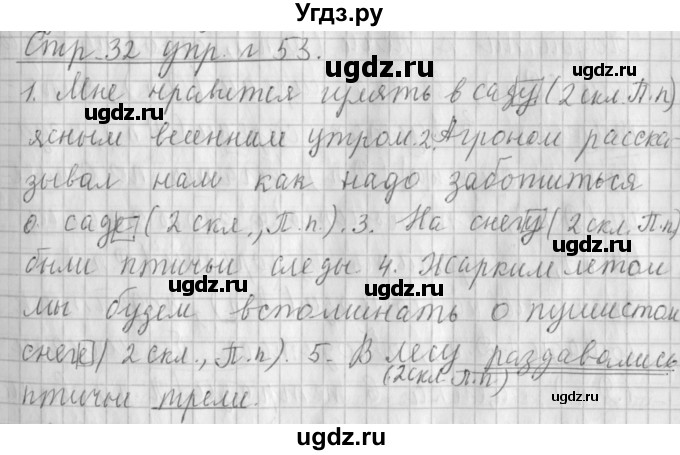 Угдз.ру
Стр. 32 упр. № 53.
1. Мне нравится гулять в саду (2 скл. П.п)
ясным весенним утром. 2. Агроном расска-
зывал нам как надо заботиться
о саде (2 скл., П.п.). 3. На снегу (2 скл. П.п)
были птичьи следы 4. Жарким летом
мы будем вспоминать о пушистом
снеге (2 скл., П.п). 5. В лесу раздавались
(2скл. П.п.)
птичьи трели.
ugdz.ru
ugdz.ru
ugdz.ru
ugdz.ru
ugdz.ru
ugdz.ru
ugdz.ru
ugdz.ru
ugdz.ru